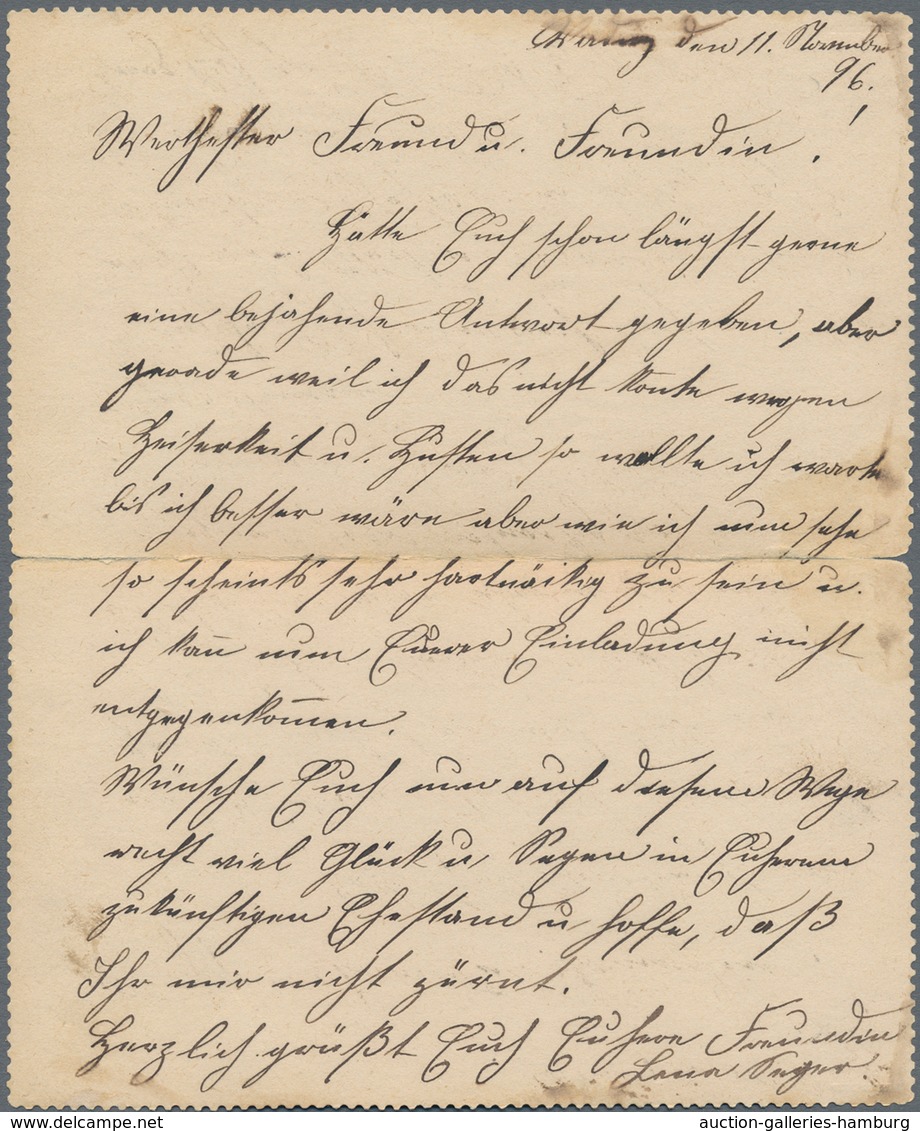 Vaduz den 11. November
96.
Werthester Freund u. Freundin!
Hätte Euch schon längst gerne
eine bejahende Antwort gegeben, aber
gerade weil ich das nicht konte wegen
Heiserkeit u. Husten so wollte ich warte
bis ich besser wäre aber wie ich nun sehe
so scheints sehr hartnäikg zu sein u.
ich kan̄ nun Euerer Einladung nicht
entgegenkom̄en.
Wünsche Euch nun auf diesem Wege
recht viel Glück u. Segen in Euherem
zukünftigen Ehestand u hoffe, daß
Ihr mir nicht zürnt.
Herzlich grüßt Euch Euhere Freundin
Lena Seger.
auction-galleries-hamburg